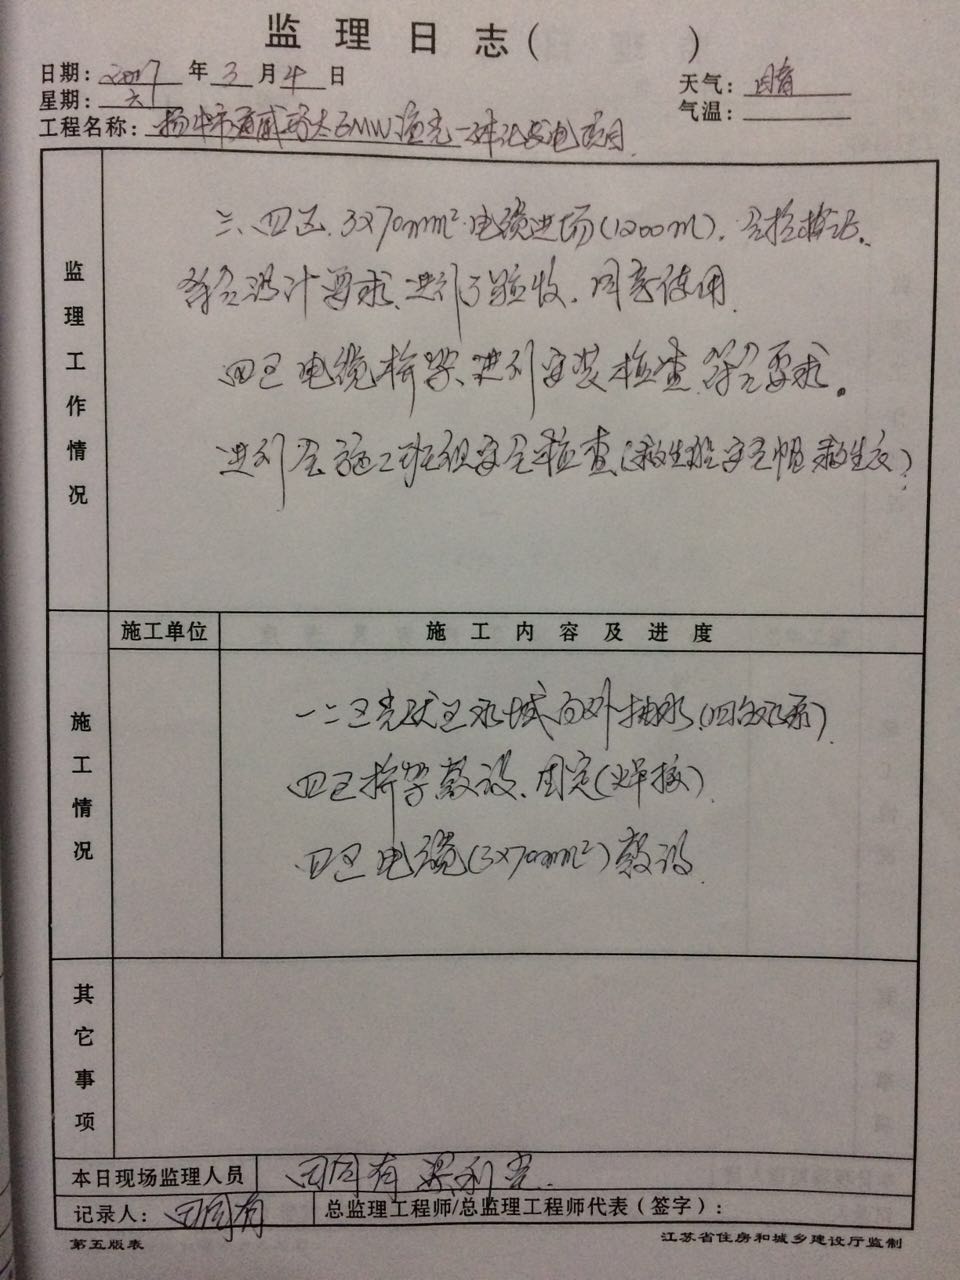 监理日志( )
日期: 2017 年 3 月 4 日
天气: 晴
星期: 六
气温:
工程名称: 扬中市通威 6MW渔光一体化发电项目
监理工作情况
三、四区 3×70mm² 电缆进场(1200m).
符合设计要求, 进行了验收, 同意使用.
四区电缆桥架进行安装检查, 符合要求。
进行全施工班组安全检查(救生船 安全帽 救生衣)
施工单位
施工内容及进度
施工情况
一二区光伏区水域向外抽水(四台水泵)
四区桥架敷设、固定(焊接)
四区电缆(3×70mm²)敷设
其它事项
本日现场监理人员
记录人:
总监理工程师/总监理工程师代表(签字):
第五版表
江苏省住房和城乡建设厅监制